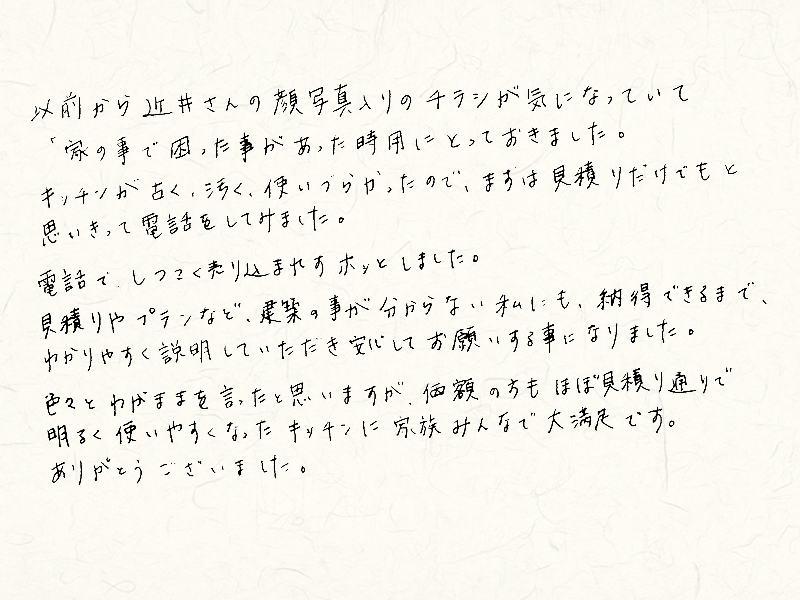 以前から近井さんの顔写真入りのチラシが気になっていて
「家の事で困った事があった時用にとっておきました。
キッチンが古く、汚く、使いづらかったので、まずは見積りだけでもと
思いきって電話をしてみました。
電話で、しつこく売り込まれずホッとしました。
見積りやプランなど、建築の事が分からない私にも、納得できるまで、
わかりやすく説明していただき安心してお願いする事になりました。
色々とわがままを言ったと思いますが、価額の方もほぼ見積り通りで
明るく使いやすくなったキッチンに家族みんなで大満足です。
ありがとうございました。